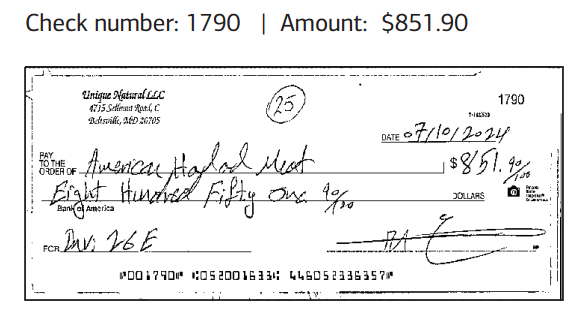 Check number: 1790 | Amount: $851.90
Unique Natural LLC
4715 Sellman Road, C
Beltsville, MD 20705
25
1790
DATE 07/10/2024
PAY TO THE ORDER OF American Halal Meat $851.90/100
Eight Hundred Fifty One 90/100 DOLLARS
Bank of America
FOR Inv: 26E
⑈001790⑈ ⑆052001633⑆ 446052336357⑈